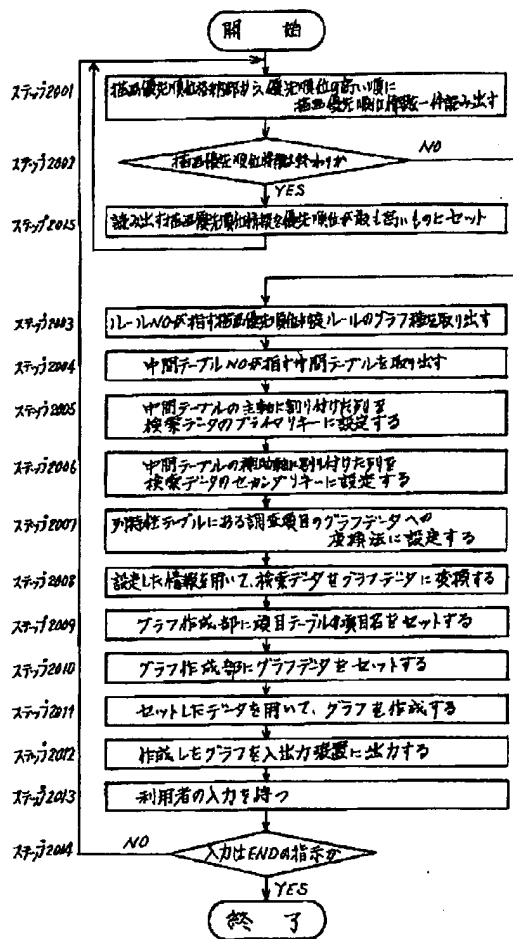 開 始
ステップ2001
描画優先順位格納部から、優先順位の高い順に
描画優先順位情報を一件読み出す
ステップ2002
描画優先順位情報は終わりか
NO
YES
ステップ2015
読み出す描画優先順位情報を優先順位が最も高いものにセット
ステップ2003
ルールNOが指す描画優先順位付後ルールのグラフ種を取り出す
ステップ2004
中間テーブルNOが指す中間テーブルを取り出す
ステップ2005
中間テーブルの主軸に割り付けた列を
検索データのプライマリキーに設定する
ステップ2006
中間テーブルの補助軸に割り付けた列を
検索データのセカンダリキーに設定する
ステップ2007
列特性テーブルにある調査項目のグラフデータへの
変換法に設定する
ステップ2008
設定した情報を用いて、検索データをグラフデータに変換する
ステップ2009
グラフ作成部に項目テーブルの項目名をセットする
ステップ2010
グラフ作成部にグラフデータをセットする
ステップ2011
セットしたデータを用いて、グラフを作成する
ステップ2012
作成したグラフを入出力装置に出力する
ステップ2013
利用者の入力を待つ
ステップ2014
NO
入力はENDの指示か
YES
終 了